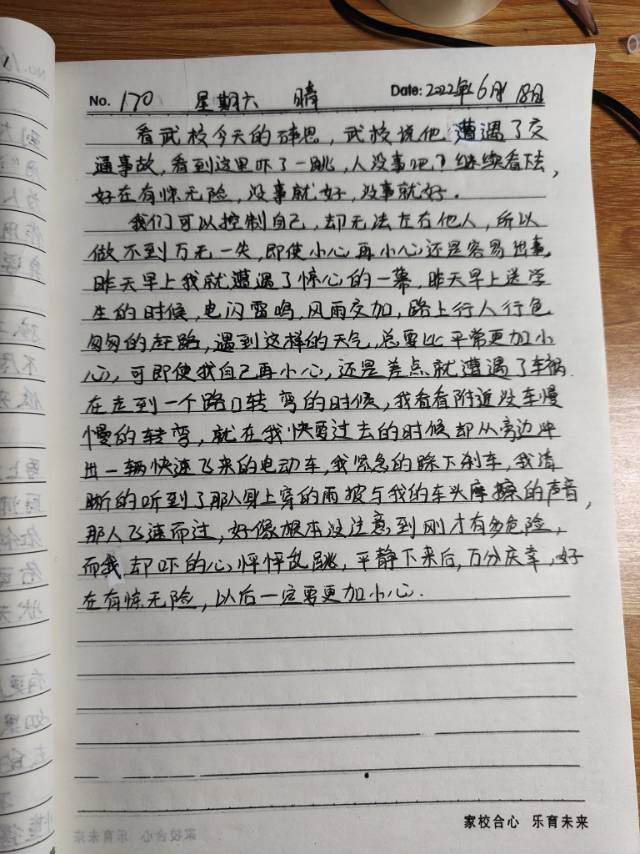 No. 170 星期六 晴 Date: 2022年6月18日
看武校今天的碎思，武校说他遭遇了交
通事故，看到这里吓了一跳，人没事吧？继续看下去，
好在有惊无险，没事就好，没事就好。
我们可以控制自己，却无法左右他人，所以
做不到万无一失，即使小心再小心还是容易出事。
昨天早上我就遭遇了惊心的一幕，昨天早上送学
生的时候，电闪雷鸣，风雨交加，路上行人行色
匆匆的赶路，遇到这样的天气，总要比平常更加小
心，可即使我自己再小心，还是差点就遭遇了车祸.
在走到一个路口转弯的时候，我看看附近没车慢
慢的转弯，就在我快要过去的时候却从旁边冲
出一辆快速飞来的电动车，我紧急的踩下刹车，我清
晰的听到了那人身上穿的雨披与我的车头摩擦的声音，
那人飞速而过，好像根本没注意到刚才有多危险，
而我却吓的心怦怦乱跳，平静下来后，万分庆幸，好
在有惊无险，以后一定要更加小心.
家校合心 乐育未来